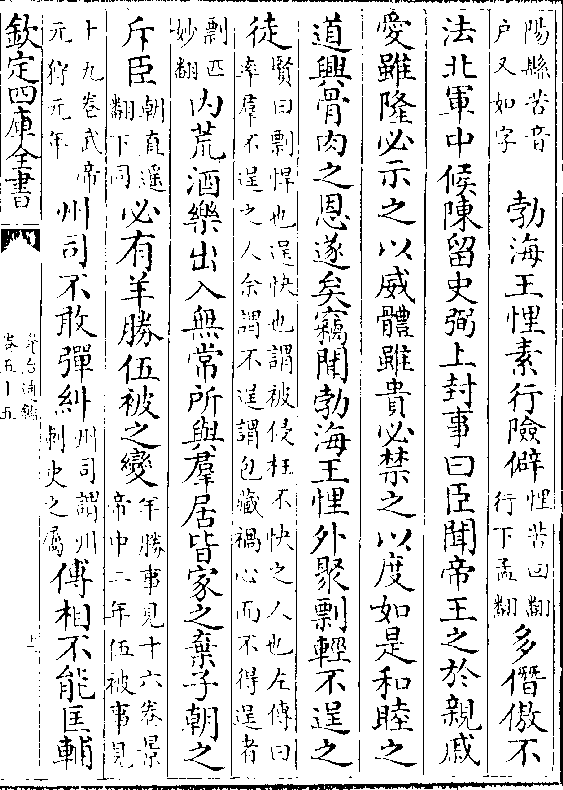 陽縣苦音
户又如字
勃海王悝素行險僻
悝苦回翻
行下孟翻
多僭傲不
法北軍中候陳留史弼上封事曰臣聞帝王之於親戚
愛雖隆必示之以威體雖貴必禁之以度如是和睦之
道興骨肉之恩遂矣竊聞勃海王悝外聚剽輕不逞之
徒
賢曰剽悍也逞快也謂被侵枉不快之人也左傳曰
率羣不逞之人余謂不逞謂包藏禍心而不得逞者
剽匹
妙翻
内荒酒樂出入無常所與羣居皆家之棄子朝之
斥臣
朝直遥
翻下同
必有羊勝伍被之變
羊勝事見十六卷景
帝中二年伍被事見
十九卷武帝
元狩元年
州司不敢彈糾
州司謂州
刺史之屬
傅相不能匡輔
欽定四庫全書
卷五十五